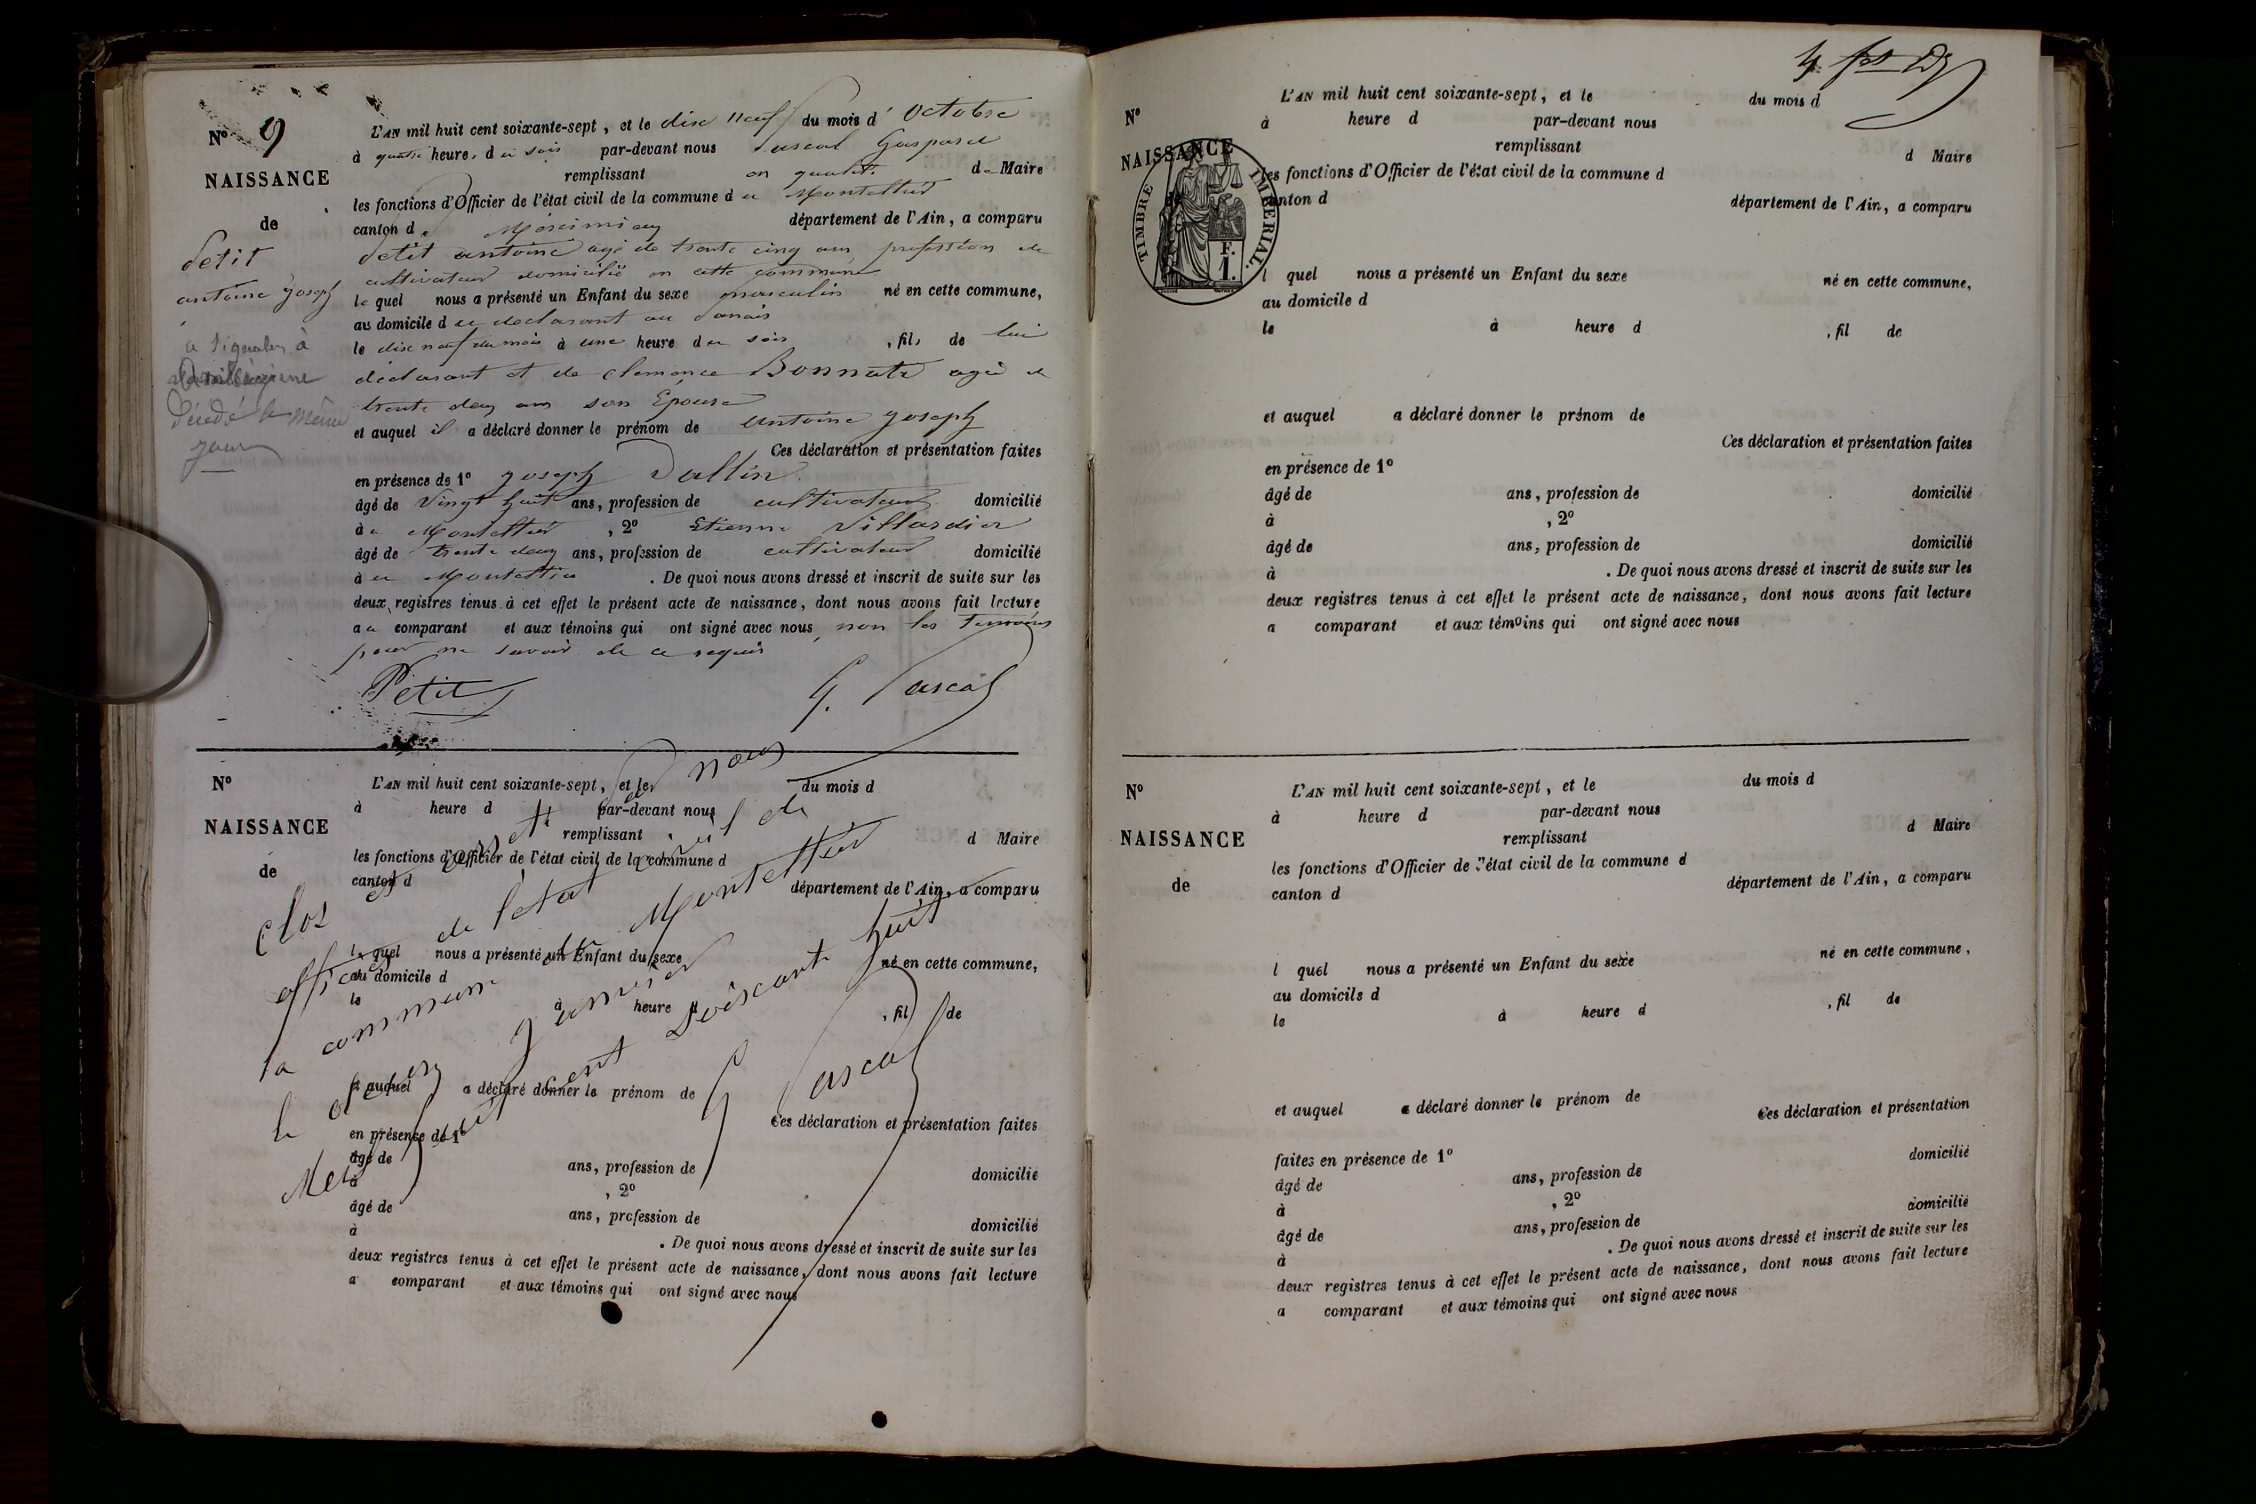 N° 9
NAISSANCE
de
Petit
antoine joseph
a signaler à
Décédé le même
jour
L'AN mil huit cent soixante-sept, et le dixe neuf du mois d' octobre
à quatre heure, d u soir par-devant nous Pascal Gaspard
remplissant en qualité de Maire
les fonctions d'Officier de l'état civil de la commune d u Montellier
canton d e Meximieux département de l'Ain, a comparu
Petit antoine agé de trente cinq ans profession de
cultivateur domicilié en cette commune
le quel nous a présenté un Enfant du sexe masculin né en cette commune,
au domicile d u declarant au
le dixe neuf du mois à une heure d u soir, fils de lui
déclarant et de clemence Bonnate agé de
trente deux ans son Epouse
et auquel il a déclaré donner le prénom de antoine joseph
Ces déclaration et présentation faites
en présence de 1° joseph Vallin
âgé de vingt huit ans, profession de cultivateur domicilié
à u Montellier, 2° Etienne Villardier
âgé de trente deux ans, profession de cultivateur domicilié
à u Montellier. De quoi nous avons dressé et inscrit de suite sur les
deux registres tenus à cet effet le présent acte de naissance, dont nous avons fait lecture
a u comparant et aux témoins qui ont signé avec nous, non les temoins
pour ne savoir de ce requis
Petit G. Pascal
N°
NAISSANCE
de
L'AN mil huit cent soixante-sept, et le du mois d
à heure d par-devant nous
remplissant d Maire
les fonctions d'Officier de l'état civil de la commune d
canton d département de l'Ain, a comparu
l quel nous a présenté un Enfant du sexe né en cette commune,
au domicile d
le à heure d , fil de
et auquel a déclaré donner le prénom de
Ces déclaration et présentation faites
en présence de 1°
âgé de ans, profession de domicilié
à , 2°
âgé de ans, profession de domicilié
à . De quoi nous avons dressé et inscrit de suite sur les
deux registres tenus à cet effet le présent acte de naissance, dont nous avons fait lecture
a comparant et aux témoins qui ont signé avec nous
Clos et arrêté par nous
officier de l'état civil de
la commune du Montellier
le premier janvier
Mil huit cent soixante huit
G Pascal
N°
NAISSANCE
TIMBRE IMPERIAL
1 F.
L'AN mil huit cent soixante-sept, et le du mois d
à heure d par-devant nous
remplissant d Maire
les fonctions d'Officier de l'état civil de la commune d
canton d département de l'Ain, a comparu
l quel nous a présenté un Enfant du sexe né en cette commune,
au domicile d
le à heure d , fil de
et auquel a déclaré donner le prénom de
Ces déclaration et présentation faites
en présence de 1°
âgé de ans, profession de domicilié
à , 2°
âgé de ans, profession de domicilié
à . De quoi nous avons dressé et inscrit de suite sur les
deux registres tenus à cet effet le présent acte de naissance, dont nous avons fait lecture
a comparant et aux témoins qui ont signé avec nous
N°
NAISSANCE
de
L'AN mil huit cent soixante-sept, et le du mois d
à heure d par-devant nous
remplissant d Maire
les fonctions d'Officier de l'état civil de la commune d
canton d département de l'Ain, a comparu
l quel nous a présenté un Enfant du sexe né en cette commune,
au domicile d
le à heure d , fil de
et auquel a déclaré donner le prénom de
Ces déclaration et présentation
faites en présence de 1°
âgé de ans, profession de domicilié
à , 2°
âgé de ans, profession de domicilié
à . De quoi nous avons dressé et inscrit de suite sur les
deux registres tenus à cet effet le présent acte de naissance, dont nous avons fait lecture
a comparant et aux témoins qui ont signé avec nous